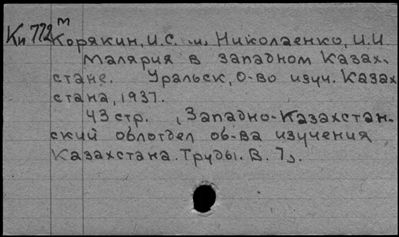 Ки 772 м
Корякин, И.С. и Николаенко, И.И
Малярия в западном Казах-
стане. Уральск, О-во изуч. Казах
стана, 1937.
43 стр. , Западно-Казахстан-
ский облотдел об-ва изучения
Казахстана. Труды. В. 7).